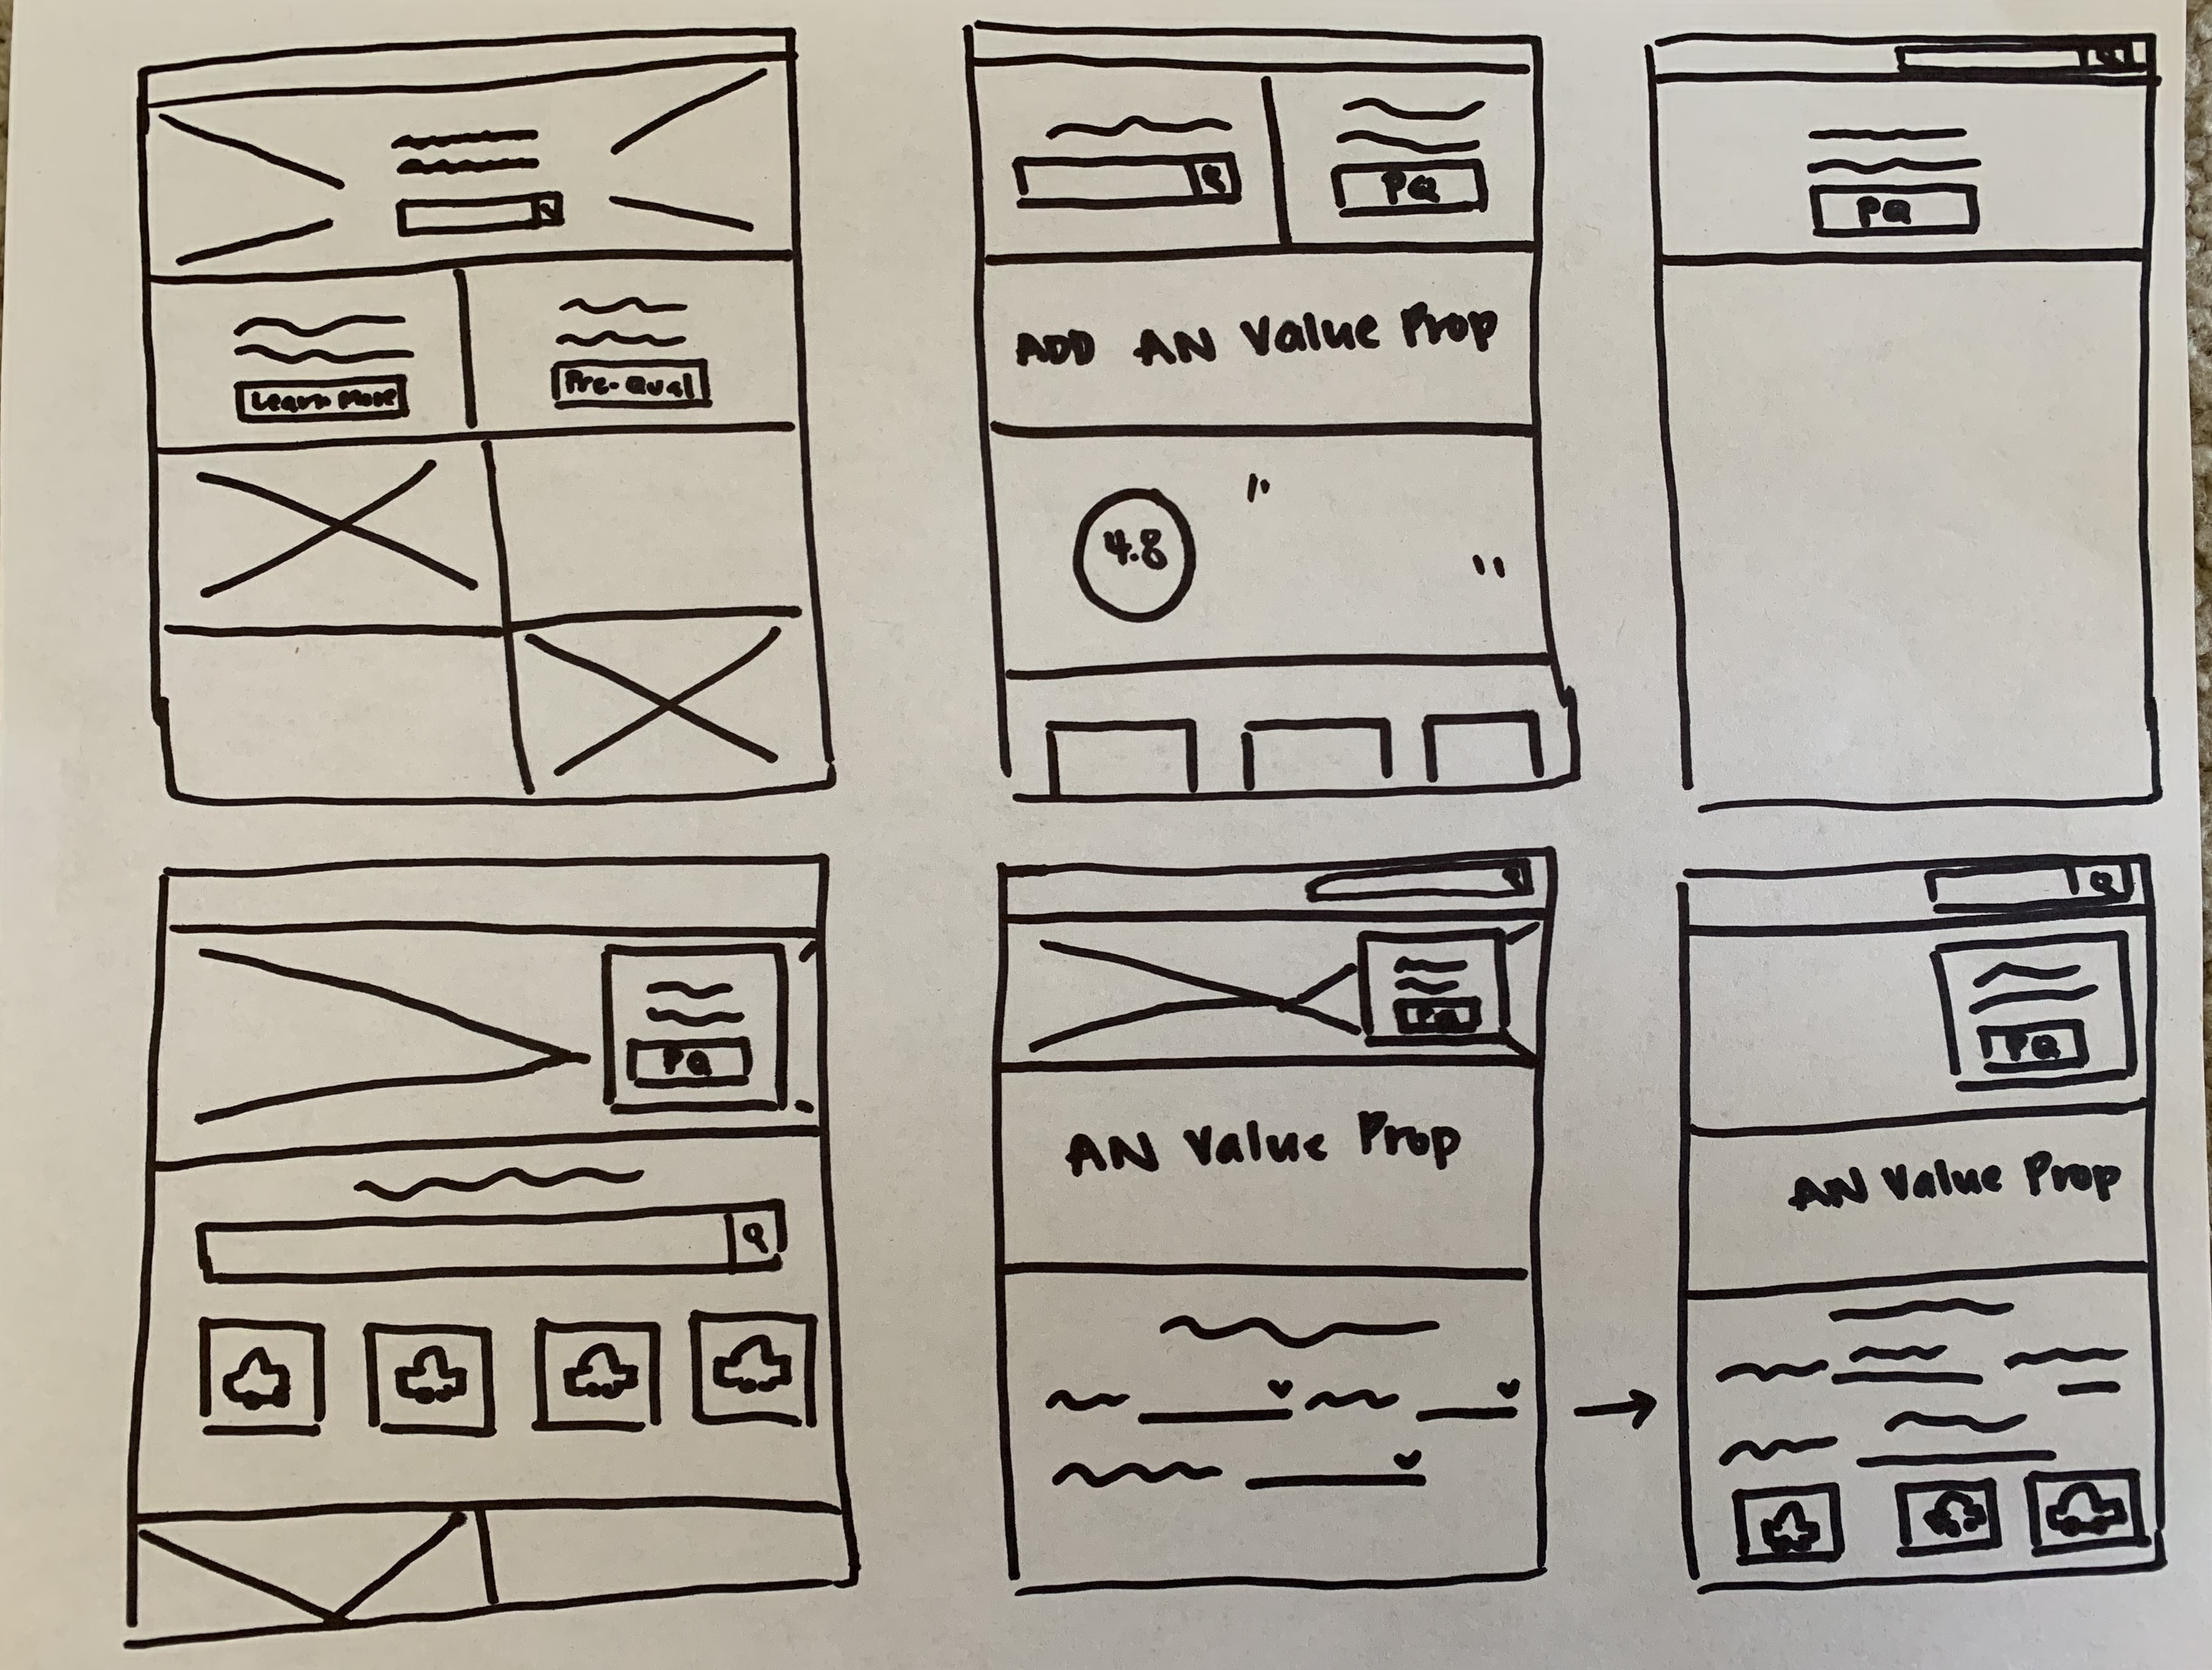 PQ
PQ
Learn More
Pre-Qual
ADD AN Value Prop
"
4.8
"
PQ
PQ
PQ
AN Value Prop
AN Value Prop